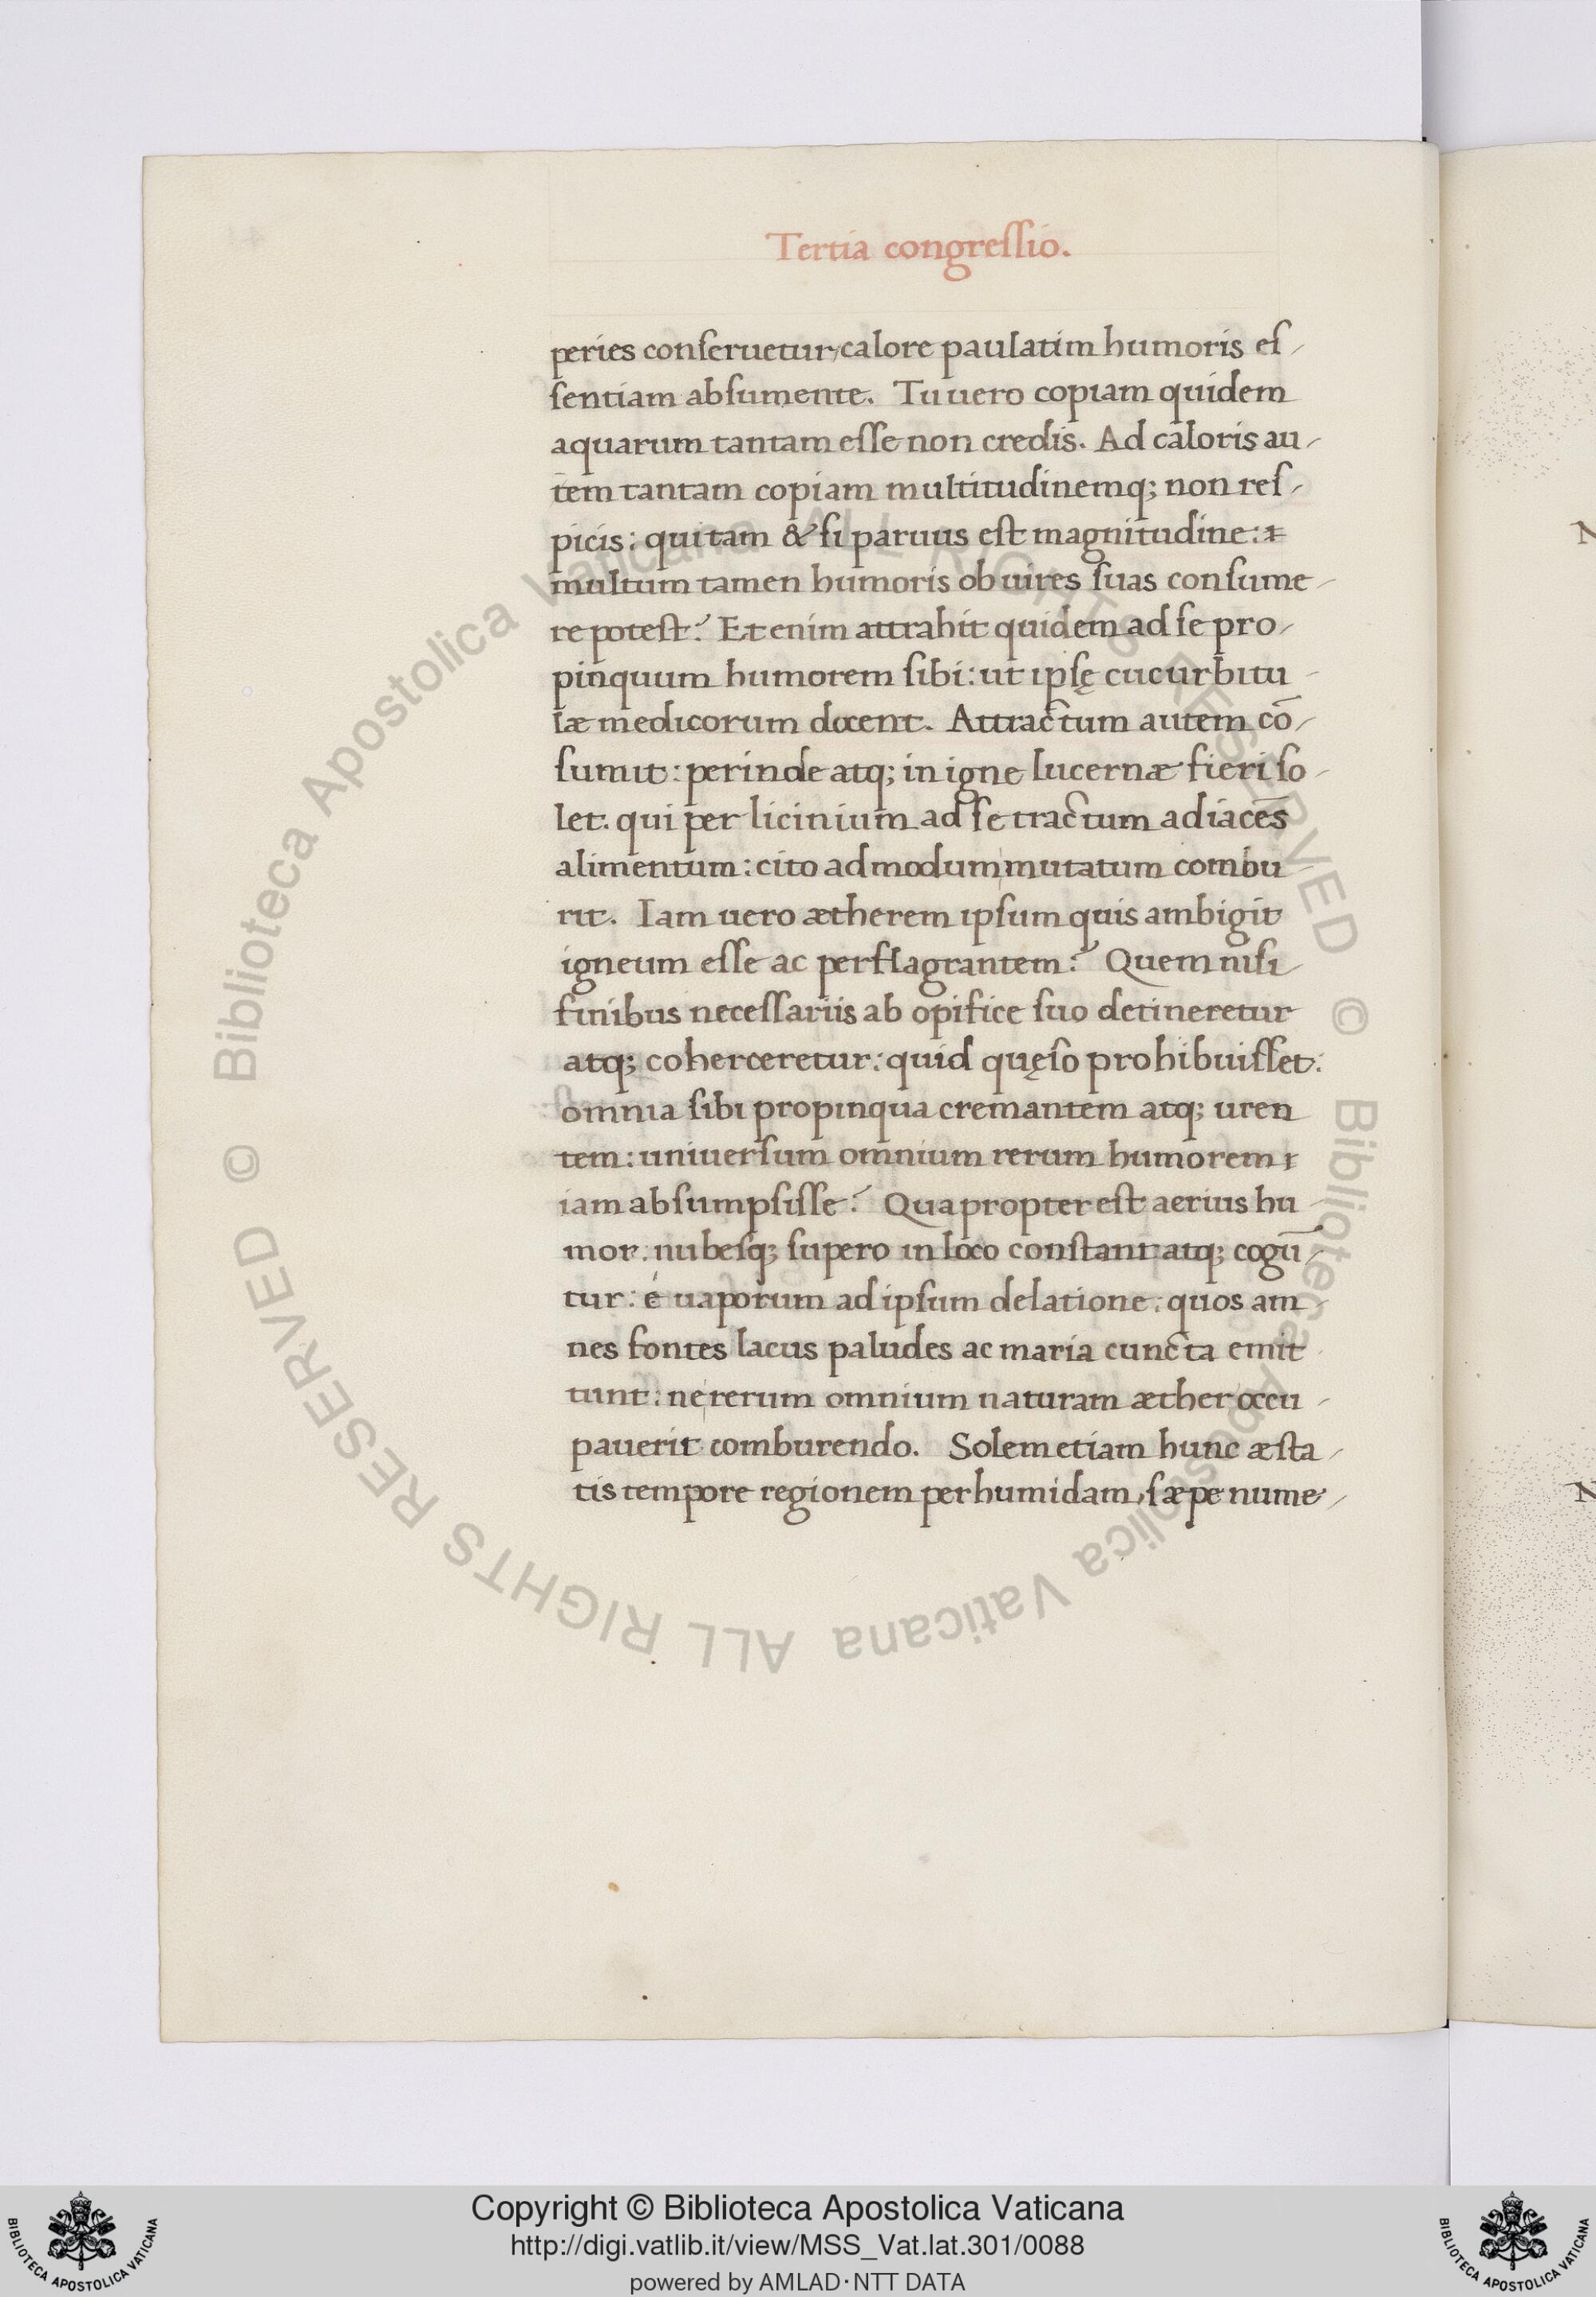 Tertia congreſſio.
peries conſeruetur, calore paulatim humoris eſ-
ſentiam abſumente. Tu uero copiam quidem
aquarum tantam eſſe non credis. Ad caloris au-
tem tantam copiam multitudinemq; non reſ-
picis: qui tam & ſi paruus eſt magnitudine:
multum tamen humoris ob uires ſuas conſume-
re poteſt? Et enim attrahit quidem ad ſe pro-
pinquum humorem ſibi: ut ipſę cucurbitu-
læ medicorum docent. Attractum autem cō-
ſumit: perinde atq; in igne lucernæ fieri ſo-
let. qui per licinium ad ſe tractum adiacēs
alimentum: cito admodum mutatum combu-
rit. Iam uero ætherem ipſum quis ambigit
igneum eſſe ac perflagrantem? Quem niſi
finibus neceſſariis ab opifice ſuo detineretur
atq; coherceretur: quid quęſo prohibuiſſet:
omnia ſibi propinqua cremantem atq; uren
tem: uniuerſum omnium rerum humorem
iam abſumpſiſſe? Quapropter eſt aerius hu-
mor. nubeſq; ſupero in loco conſtant atq; cogū-
tur: é uaporum ad ipſum delatione: quos am-
nes fontes lacus paludes ac maria cuncta emit-
tunt: ne rerum omnium naturam æther occu-
pauerit comburendo. Solem etiam hunc æſta-
tis tempore regionem perhumidam, ſæpe nume-
© Biblioteca Apostolica Vaticana ALL RIGHTS RESERVED
© Biblioteca Apostolica Vaticana ALL RIGHTS RESERVED
Copyright © Biblioteca Apostolica Vaticana
http://digi.vatlib.it/view/MSS_Vat.lat.301/0088
powered by AMLAD·NTT DATA
BIBLIOTECA APOSTOLICA VATICANA
BIBLIOTECA APOSTOLICA VATICANA